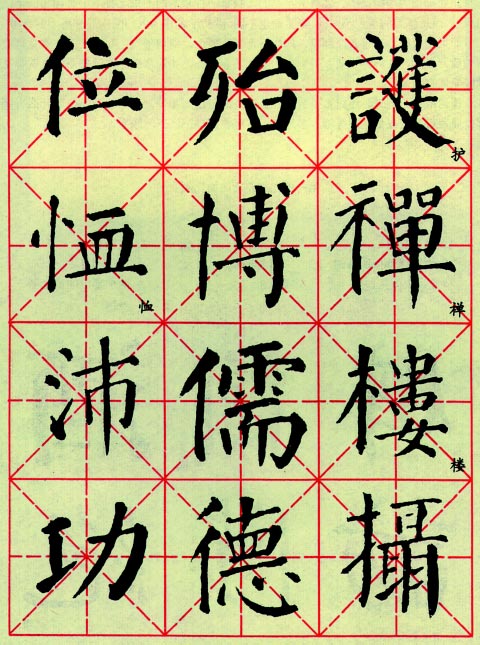 護护
禪禅
樓楼
攝
殆
博
儒
德
位
恤恤
沛
功